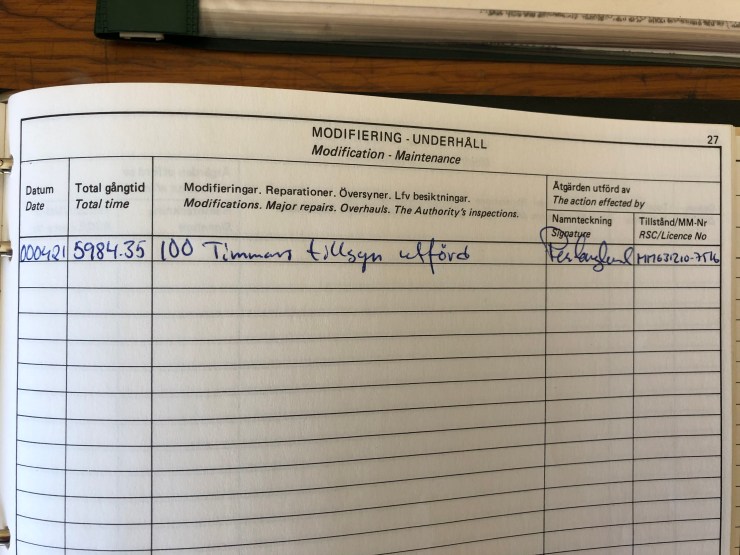 27
MODIFIERING - UNDERHÅLL
Modification - Maintenance
Datum
Date
Total gångtid
Total time
Modifieringar. Reparationer. Översyner. Lfv besiktningar.
Modifications. Major repairs. Overhauls. The Authority's inspections.
Åtgärden utförd av
The action effected by
Namnteckning
Signature
Tillstånd/MM-Nr
RSC/Licence No
000421 5984.35 100 Timmars tillsyn utförd